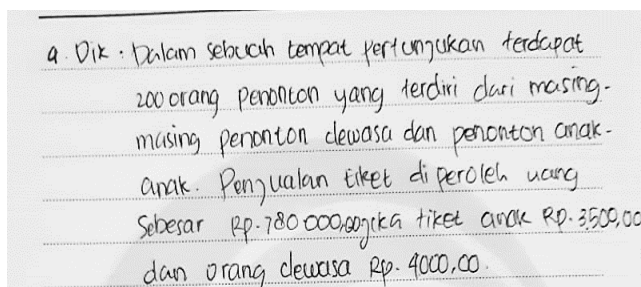 a. Dik : Dalam sebuah tempat pertunjukan terdapat
200 orang penonton yang terdiri dari masing-
masing penonton dewasa dan penonton anak-
anak. Penjualan tiket di peroleh uang
Sebesar Rp. 780 000,00 jika tiket anak Rp. 3.500,00
dan orang dewasa Rp. 4000,00.